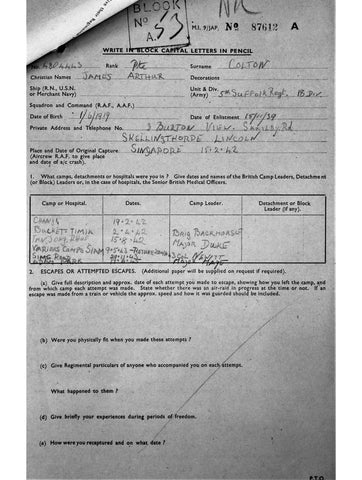 BLOCK
No
A.
53
NR
M.I. 9/JAP. No 87612 A
WRITE IN BLOCK CAPITAL LETTERS IN PENCIL
Rank Pte Surname COLTON
Christian Names JAMES ARTHUR Decorations
Ship (R.N., U.S.N. or Merchant Navy)
Unit & Div. (Army) 5th Suffolk Regt, 18 Div.
Squadron and Command (R.A.F., A.A.F.)
Date of Birth /6/1919 Date of Enlistment 15/11/39
Private Address and Telephone No. 3 BURTON VIEW.
SKELLINGTHORPE LINCOLN
Place and Date of Original Capture SINGAPORE 15-2-42
(Aircrew R.A.F. to give place
and date of a/c crash.)
1. What camps, detachments or hospitals were you in? Give dates and names of the British Camp Leaders, Detachment
(or Block) Leaders or, in the case of hospitals, the Senior British Medical Officers.
Camp or Hospital. Dates. Camp Leader. Detachment or Block Leader (if any).
CHANGI 19-2-42
BUCKETT TIMIA 2-4-42 BRIG BACKHORSE
15-8-42 MAJOR DUKE
VARIOUS CAMPS SIAM
SIME ROAD
PARK
2. ESCAPES OR ATTEMPTED ESCAPES. (Additional paper will be supplied on request if required).
(a) Give full description and approx. date of each attempt you made to escape, showing how you left the camp, and
from which camp each attempt was made. State whether there was an air-raid in progress at the time or not. If an
escape was made from a train or vehicle the approx. speed and how it was guarded should be included.
(b) Were you physically fit when you made these attempts?
(c) Give Regimental particulars of anyone who accompanied you on each attempt.
What happened to them?
(d) Give briefly your experiences during periods of freedom.
(e) How were you recaptured and on what date?
P.T.O.